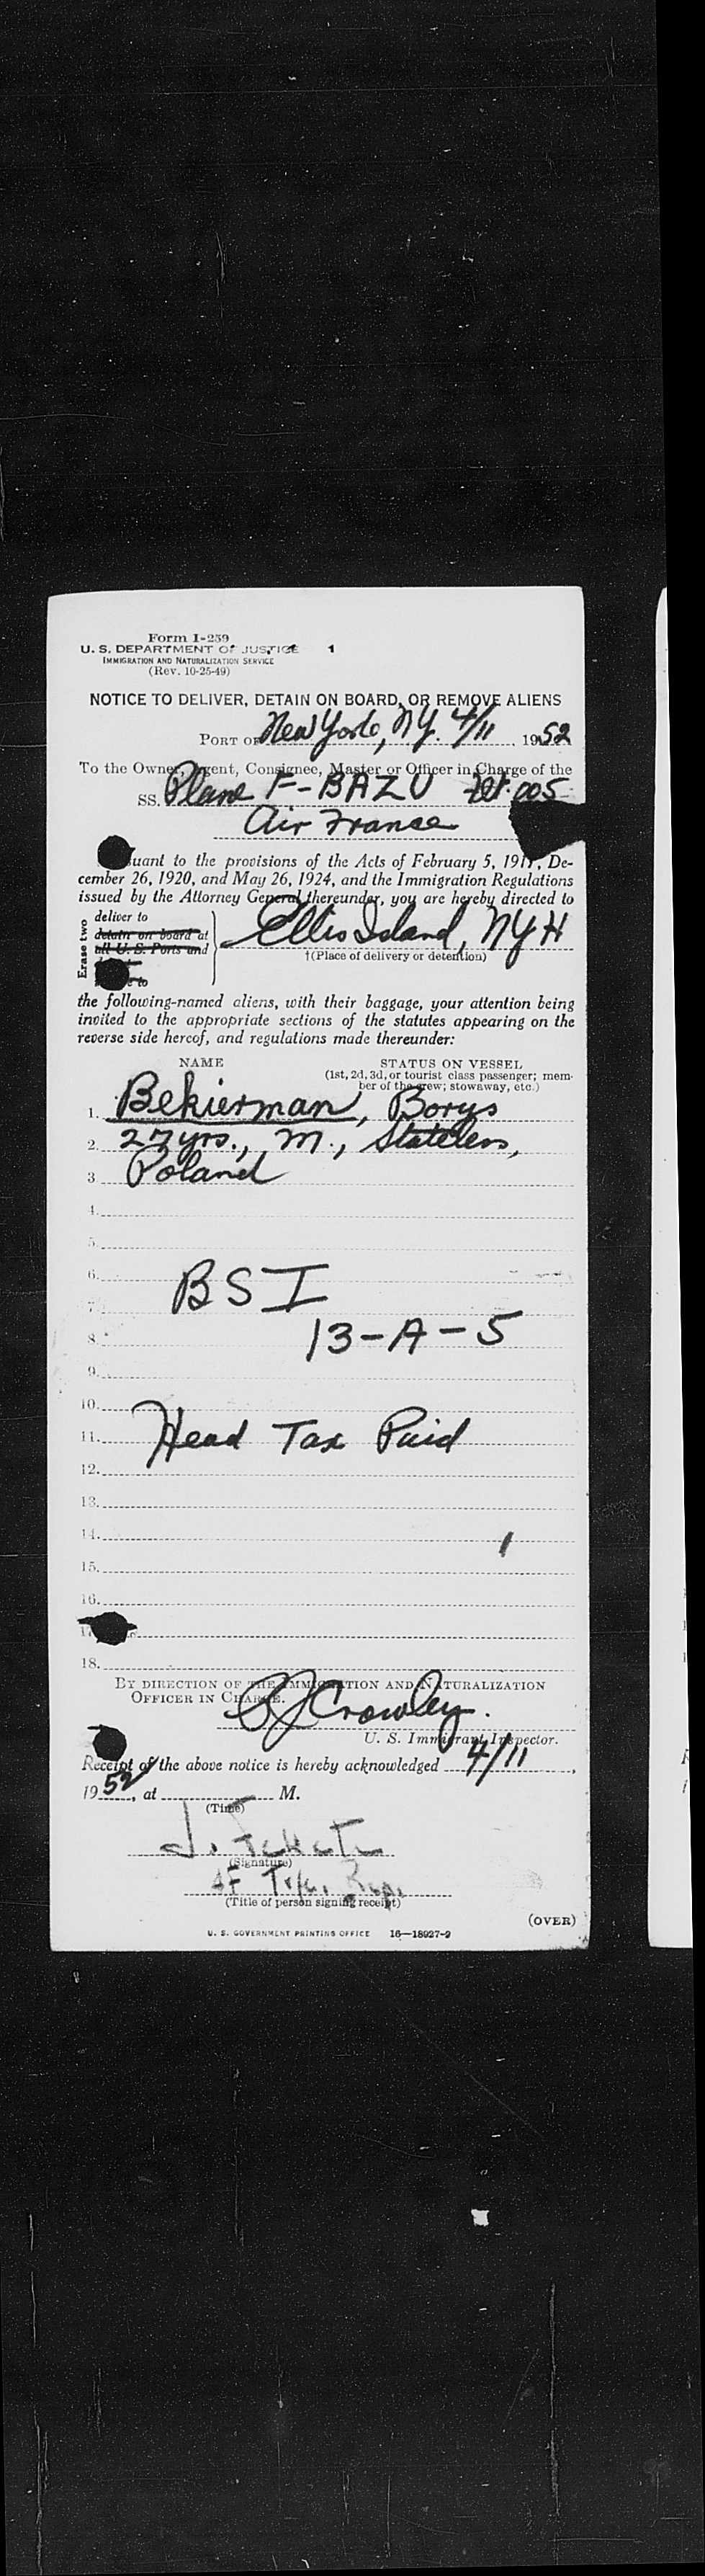 Form I-259
U. S. DEPARTMENT OF JUSTICE 1
IMMIGRATION AND NATURALIZATION SERVICE
(Rev. 10-25-49)
NOTICE TO DELIVER, DETAIN ON BOARD, OR REMOVE ALIENS
PORT OF New York, N.Y. 4/11, 1952
To the Owner, Agent, Consignee, Master or Officer in Charge of the
SS. Plane F-BAZU Flt. 005
Air France
uant to the provisions of the Acts of February 5, 1917, De-
cember 26, 1920, and May 26, 1924, and the Immigration Regulations
issued by the Attorney General thereunder, you are hereby directed to
Erase two
deliver to
detain on board at
all U. S. Ports and
to
Ellis Island, NYH
†(Place of delivery or detention)
the following-named aliens, with their baggage, your attention being
invited to the appropriate sections of the statutes appearing on the
reverse side hereof, and regulations made thereunder:
NAME STATUS ON VESSEL
(1st, 2d, 3d, or tourist class passenger; mem-
ber of the crew; stowaway, etc.)
1. Bekierman, Borys
2. 27 yrs., M., Stateless,
3. Poland
4.
5.
6. BSI
7.
8. 13-A-5
9.
10.
11. Head Tax Paid
12.
13.
14.
15.
16.
17.
18.
BY DIRECTION OF THE IMMIGRATION AND NATURALIZATION
OFFICER IN CHARGE.
Crowley.
U. S. Immigrant Inspector.
Receipt of the above notice is hereby acknowledged 4/11,
1952, at M.
(Time)
J.
(Signature)
AF
(Title of person signing receipt)
(OVER)
U. S. GOVERNMENT PRINTING OFFICE 16—18927-2